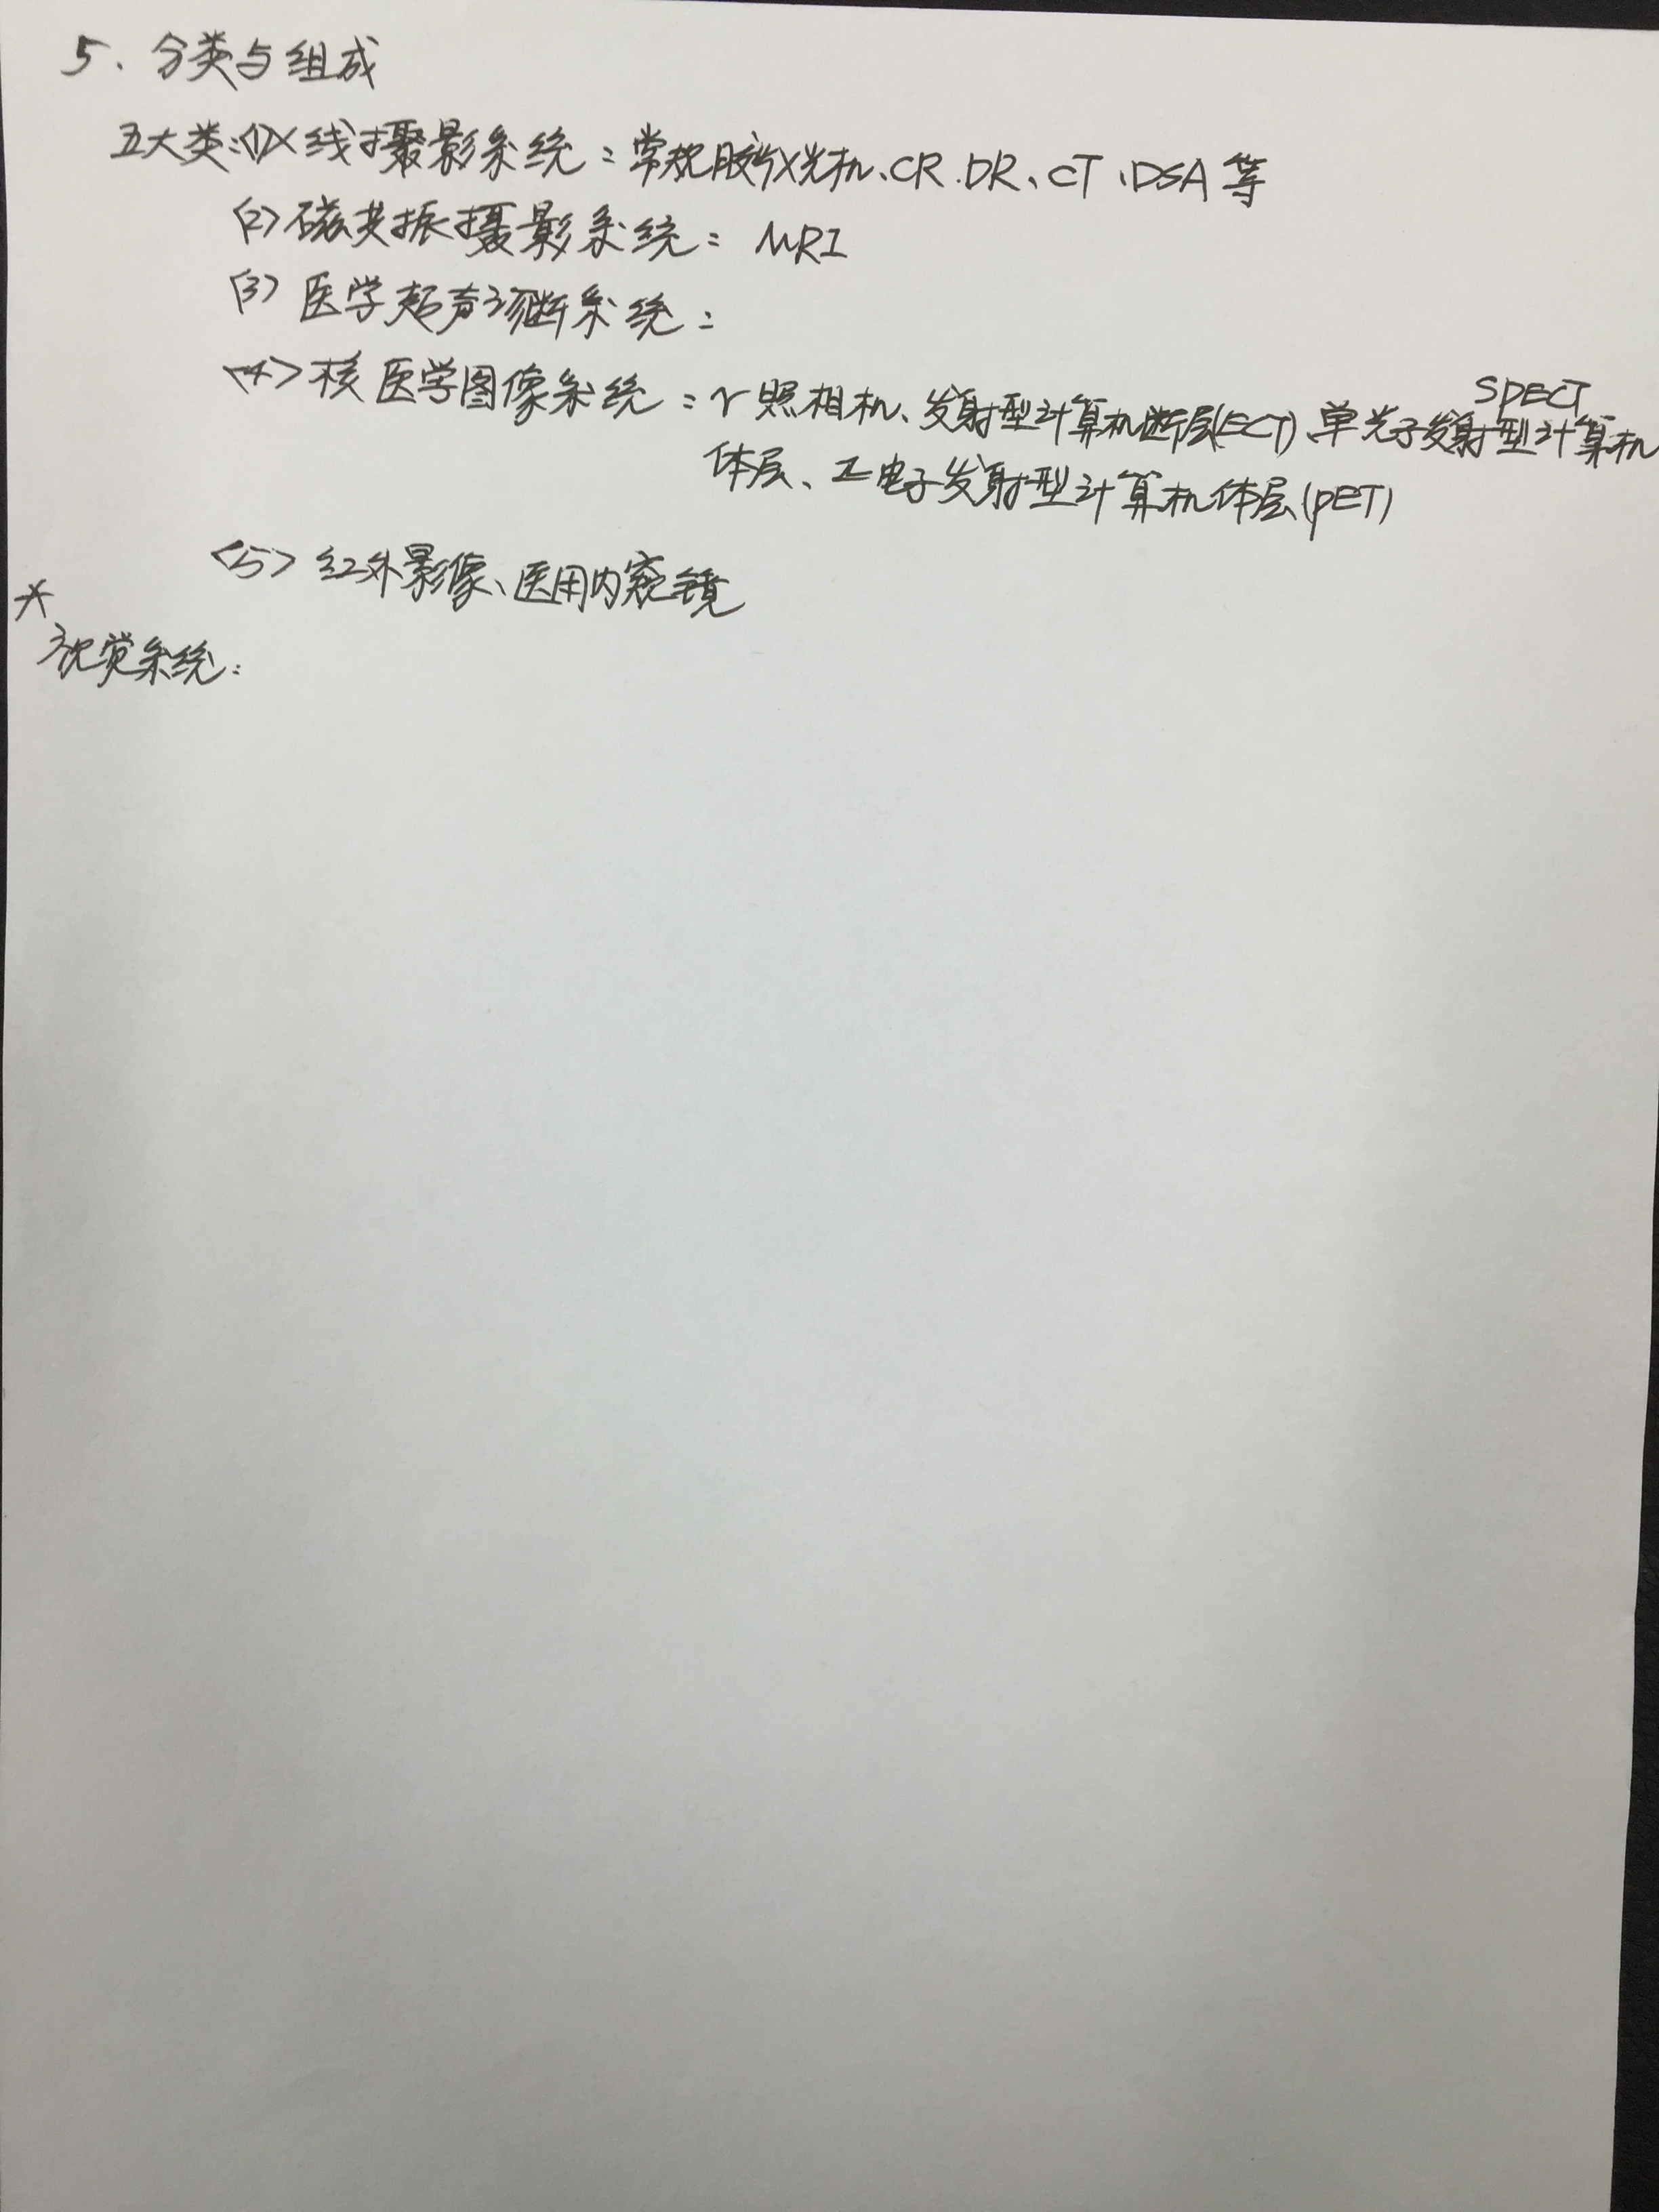 5、分类与组成
五大类:<1>X线摄影系统:常规胶片X光机、CR.DR、CT、DSA等
<2>磁共振摄影系统: MRI
<3>医学超声诊断系统:
<4>核医学图像系统:γ照相机、发射型计算机断层(ECT)、单光子发射型计算机
SPECT
体层、正电子发射型计算机体层(PET)
<5>红外影像、医用内窥镜
*
视觉系统: